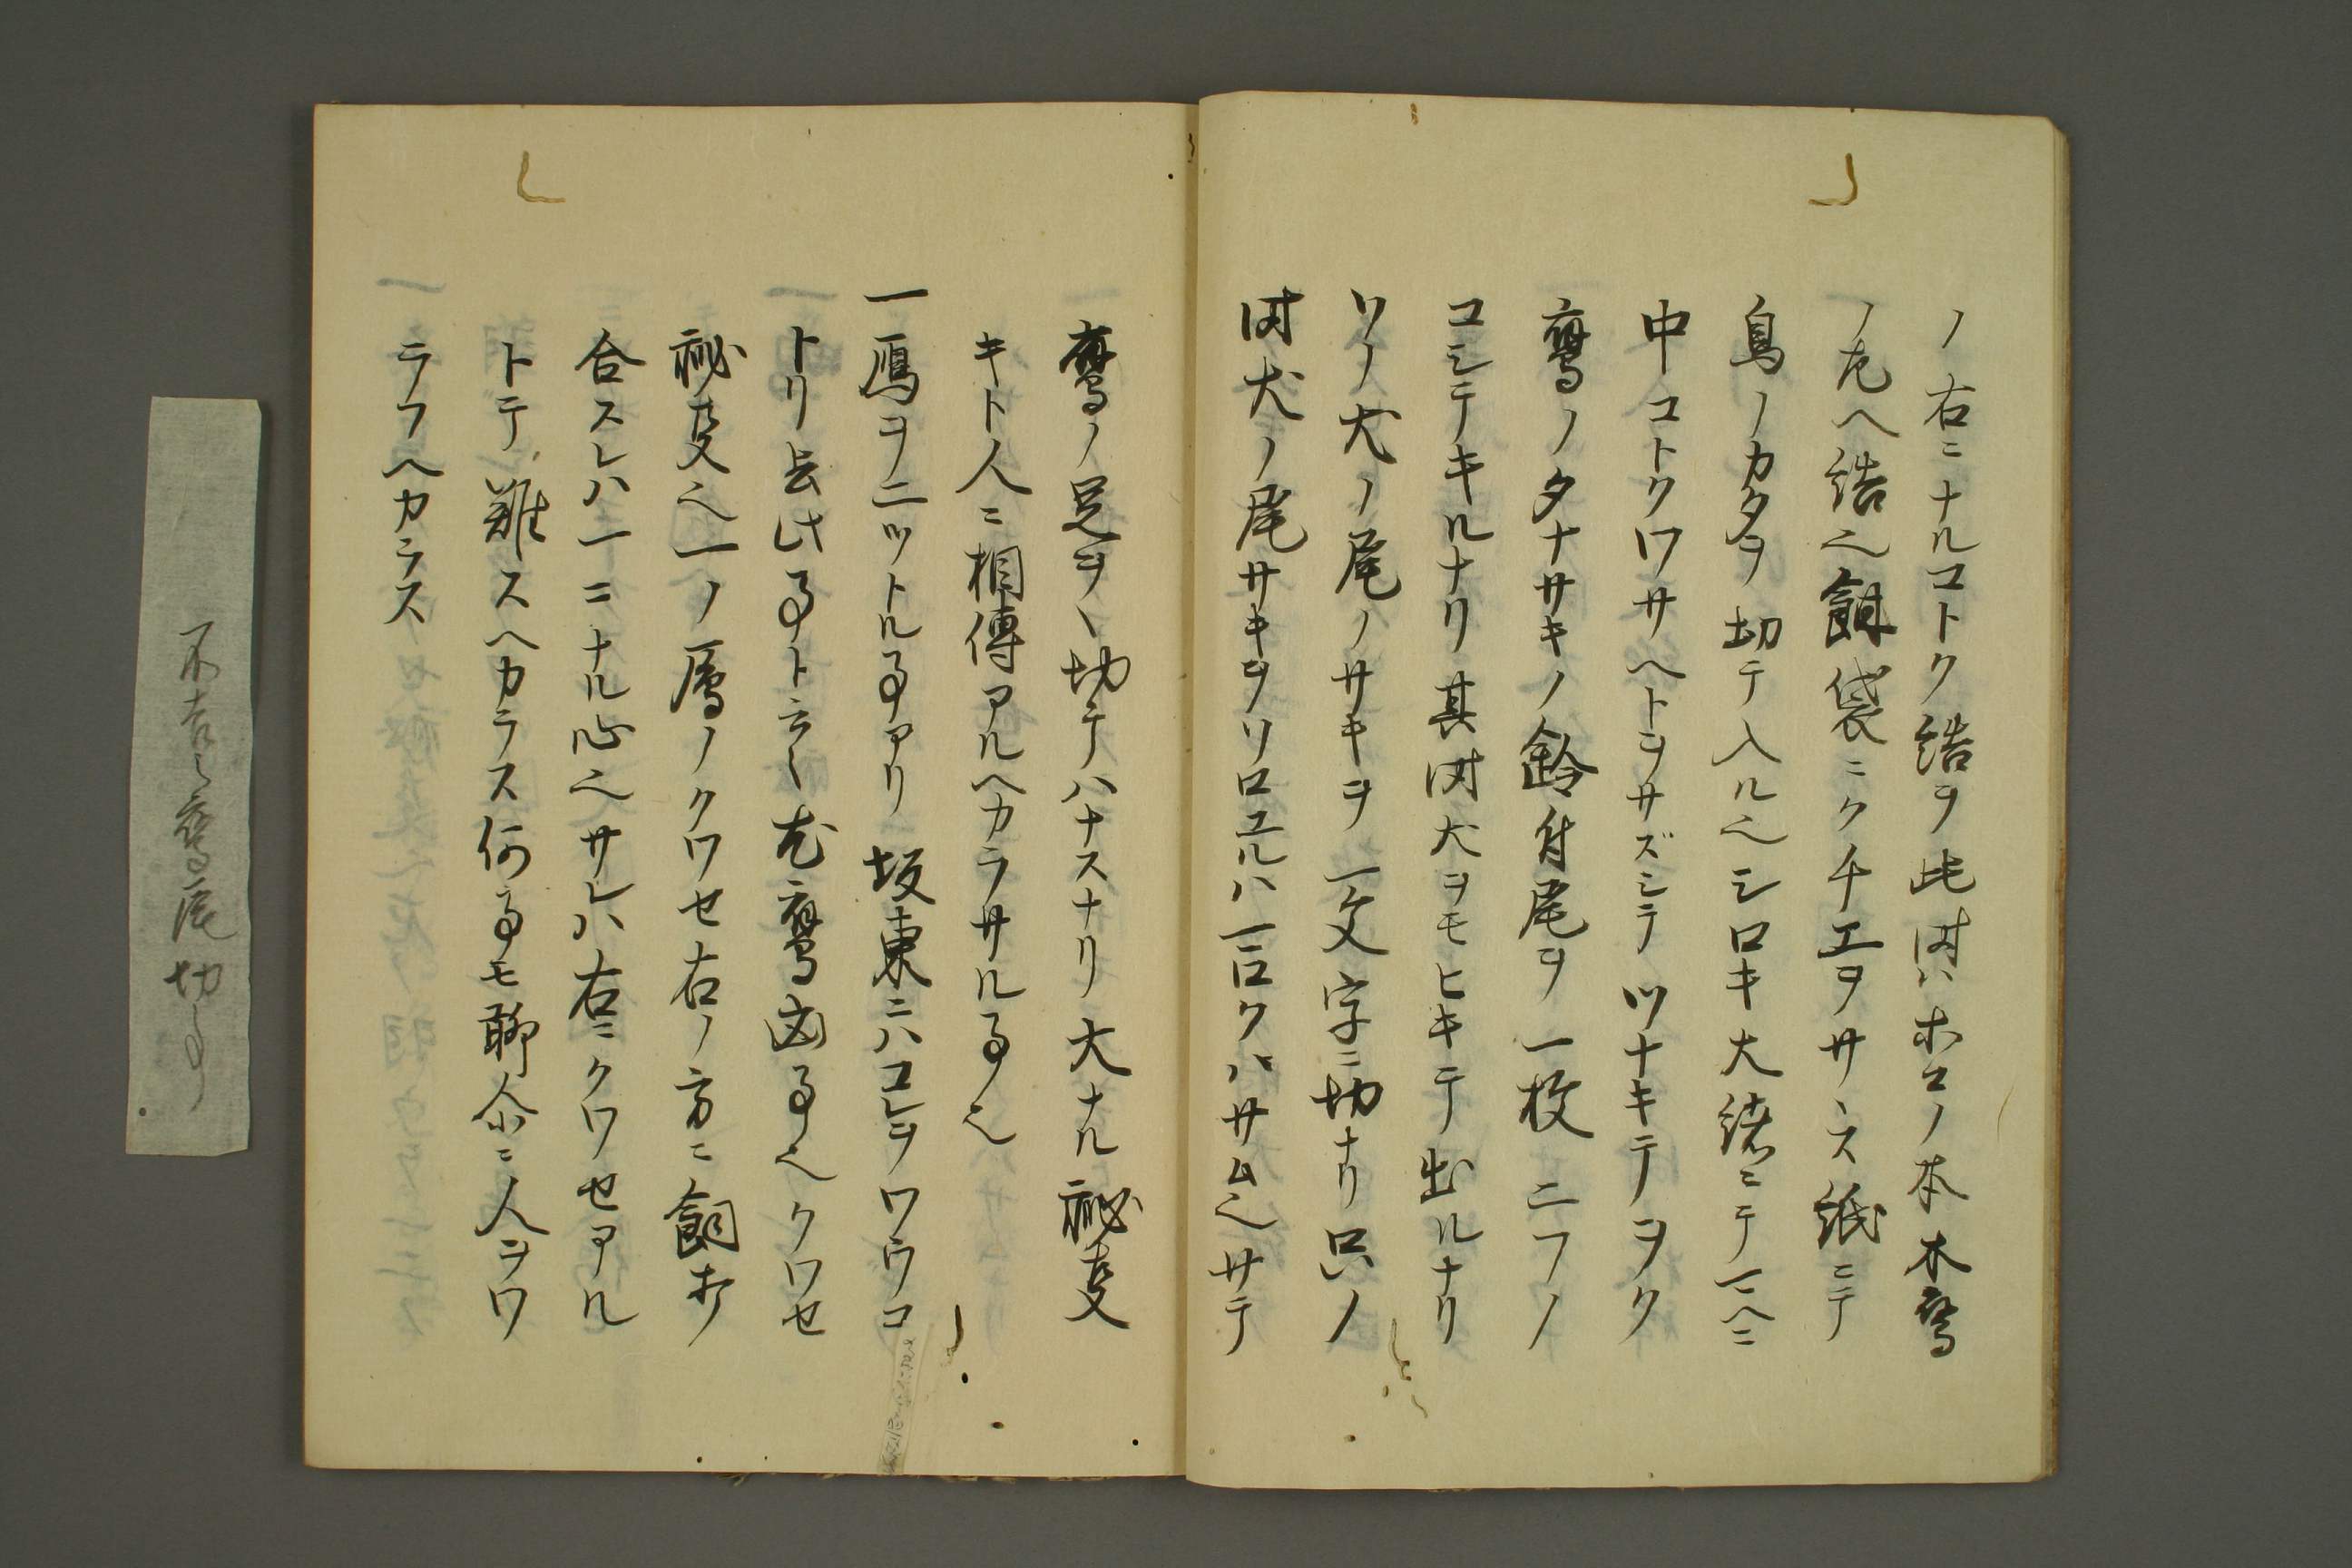 ノ右ニナルコトク結ヲ此時ハホコノ本木鷹
ノ左ヘ結也餌袋ニクチエヲサヽス紙ニテ
鳥ノカタヲ切テ入ル也シロキ大緒ニテ一ヘニ
中コトクワサヘトヲサズシテツナキテヲク
鷹ノタナサキノ鈴付尾ヲ一枚ニフノ
コシテキルナリ其時犬ヲモヒキテ出ルナリ
ソノ犬ノ尾ノサキヲ一文字ニ切ナリ只ノ
時犬ノ尾サキヲソロユルハ一口クハサム也サテ
鷹ノ足ヲヽ切テハナスナリ大ナル秘支
キト人ニ相傳アルヘカラサル事也
一鴈ヲ二ツトル事アリ坂東ニハコレヲワウコ
トリト云此事ト云々尤鷹凶事也クワセ
秘支也一ノ鴈ノクワセ右ノ方ニ餌オ
合スレハ一ニナル心也サレハ右ニクワセアル
トテ難スヘカラス何事モ聊尓ニ人ヲワ
ラフヘカラス
不吉之鷹尾切事